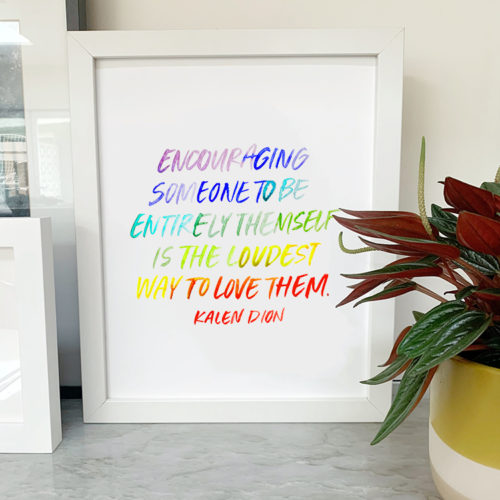 ENCOURAGING
SOMEONE TO BE
ENTIRELY THEMSELF
IS THE LOUDEST
WAY TO LOVE THEM.
KALEN DION